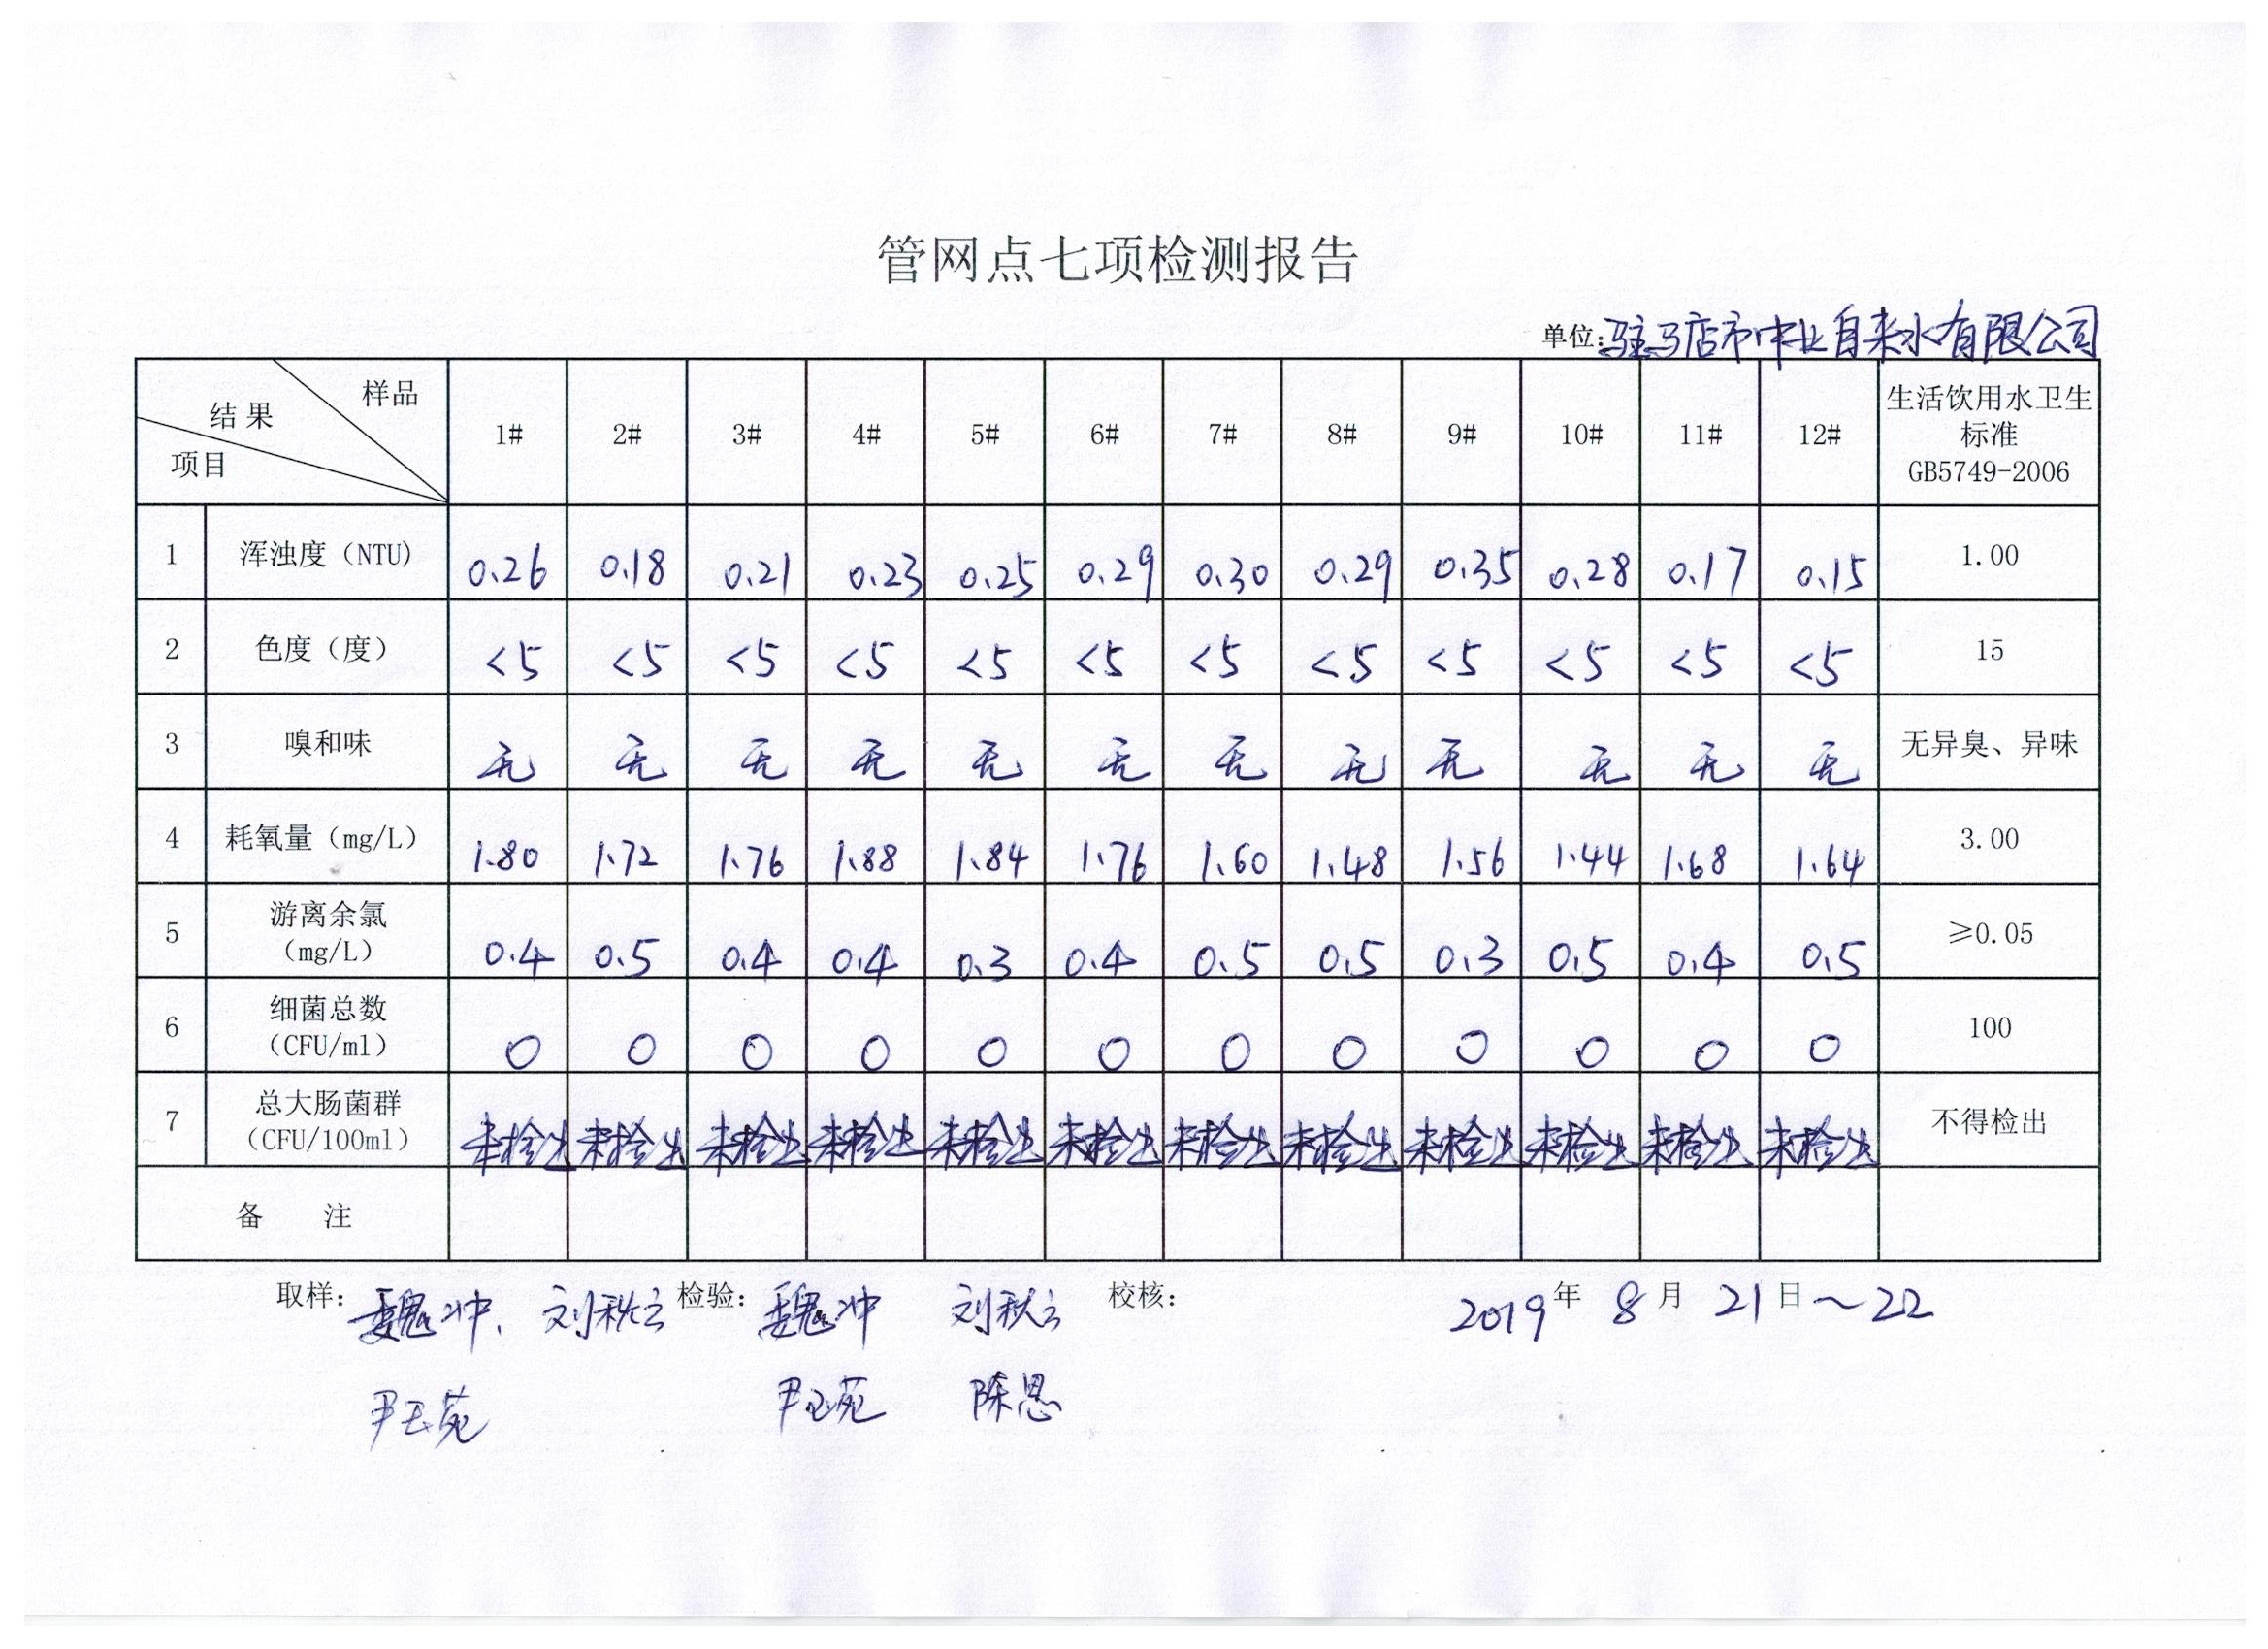 管网点七项检测报告
单位:驻马店市中业自来水有限公司
样品 结果 项目 1# 2# 3# 4# 5# 6# 7# 8# 9# 10# 11# 12# 生活饮用水卫生标准 GB5749-2006
1 浑浊度（NTU） 0.26 0.18 0.21 0.23 0.25 0.29 0.30 0.29 0.35 0.28 0.17 0.15 1.00
2 色度（度） <5 <5 <5 <5 <5 <5 <5 <5 <5 <5 <5 <5 15
3 嗅和味 无 无 无 无 无 无 无 无 无 无 无 无 无异臭、异味
4 耗氧量（mg/L） 1.80 1.72 1.76 1.88 1.84 1.76 1.60 1.48 1.56 1.44 1.68 1.64 3.00
5 游离余氯（mg/L） 0.4 0.5 0.4 0.4 0.3 0.4 0.5 0.5 0.3 0.5 0.4 0.5 ≥0.05
6 细菌总数（CFU/ml） 0 0 0 0 0 0 0 0 0 0 0 0 100
7 总大肠菌群（CFU/100ml） 未检出 未检出 未检出 未检出 未检出 未检出 未检出 未检出 未检出 未检出 未检出 未检出 不得检出
备 注
取样: 魏冲、刘秋云 检验: 魏冲 刘秋云 校核: 2019年 8月 21日~22
尹玉苑 尹玉苑 陈思